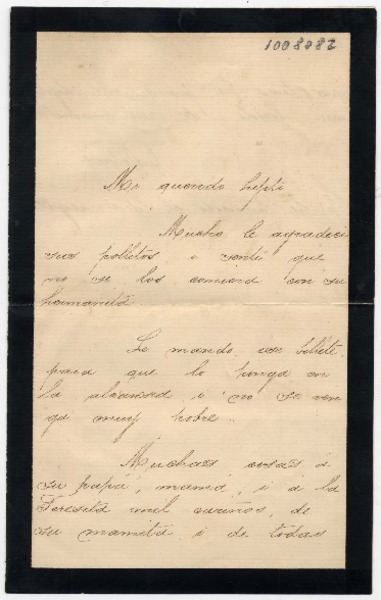 1008082
Mi querido Pepito
Mucho le agradeci
sus pollitos i sentí que
no se los comiera con su
hermanita.
Le mando un billete
para que lo ponga en
la alcancia i no se ven
ga muy pobre.
Muchas cosas á
su papá, mamá, i a la
Teresita mil cariños, de
su mamita i de todas